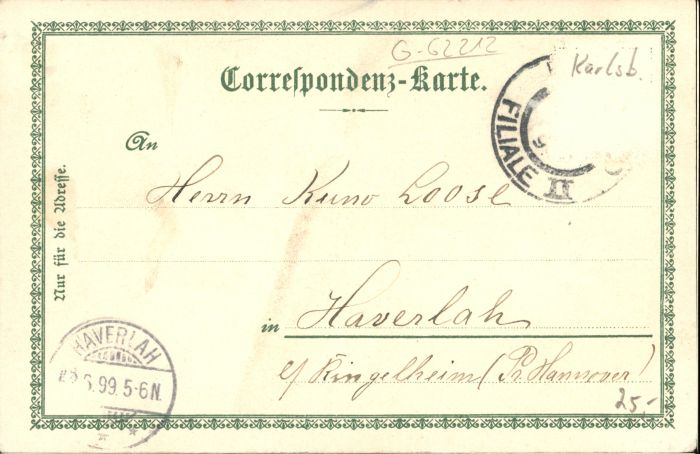 G-62212
Karlsb.
Correspondenz-Karte.
FILIALE II
An
Herrn Kuno Loose
Nur für die Adresse.
in Haverlah
b/ Ringelheim (Pr. Hannover)
HAVERLAH
5.99.5-6N.
25,-